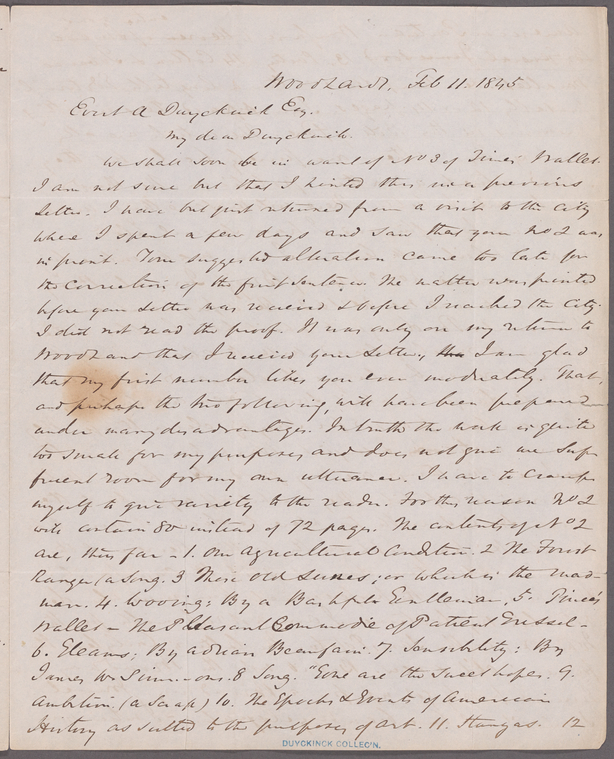 Woodlands, Feb 11. 1845
Evert A Duyckinck Esq.
My dear Duyckinck.
We shall soon be in want of No 3 of Time's Wallet.
I am not sure but that I hinted this in a previous
letter. I have but just returned from a visit to the city
where I spent a few days and saw that your No 2 was
in print. Your suggested alteration came too late for
the correction of the first sentence. The matter was printed
before your letter was received & before I reached the city.
I did not read the proof. It was only on my return to
Woodland that I received your letter, I am glad
that my first number likes you even moderately. That,
and perhaps the two following, will have been prepared
under many disadvantages. In truth the work is quite
too small for my purposes and does not give me suf
ficient room for my own utterance. I have to cramp
myself to give variety to the reader. For this reason No 2
will contain 80 instead of 72 pages. The contents of No 2
are, thus far — 1. Our Agricultural Condition. 2 The Forest
Ranger (a song. 3 Those old Lunes; or which is the mad-
man. 4. Wooing: By a Bashful Gentleman, 5. Time's
Wallet — The Pleasant Commodie of Patient Grissel —
6. Gleams; By Adrian Beaufain. 7. Sensibility: By
James W. Simmons. 8 Song. "Gone are the sweet hopes. 9.
Ambition. (a Scrap) 10. The Epochs & Events of American
History as suited to the purposes of Art. 11. Stanzas. 12
DUYCKINCK COLLEC'N.